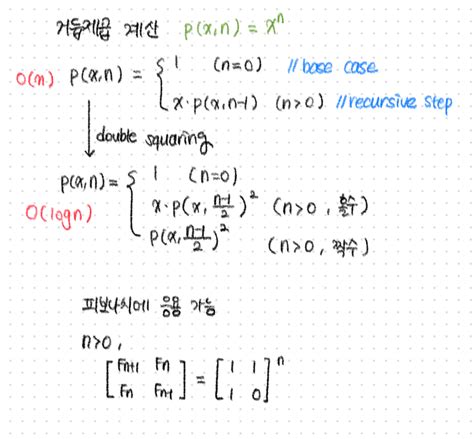 거듭제곱 계산 p(x,n) = xⁿ
O(n) p(x,n) = { 1 (n=0) // base case
x·p(x,n-1) (n>0) // recursive step
↓ double squaring
O(logn) p(x,n) = { 1 (n=0)
x·p(x, (n-1)/2)² (n>0, 홀수)
p(x, (n-1)/2)² (n>0, 짝수)
피보나치에 응용 가능
n>0,
[ Fn+1 Fn ] = [ 1 1 ]ⁿ
[ Fn Fn-1 ] [ 1 0 ]